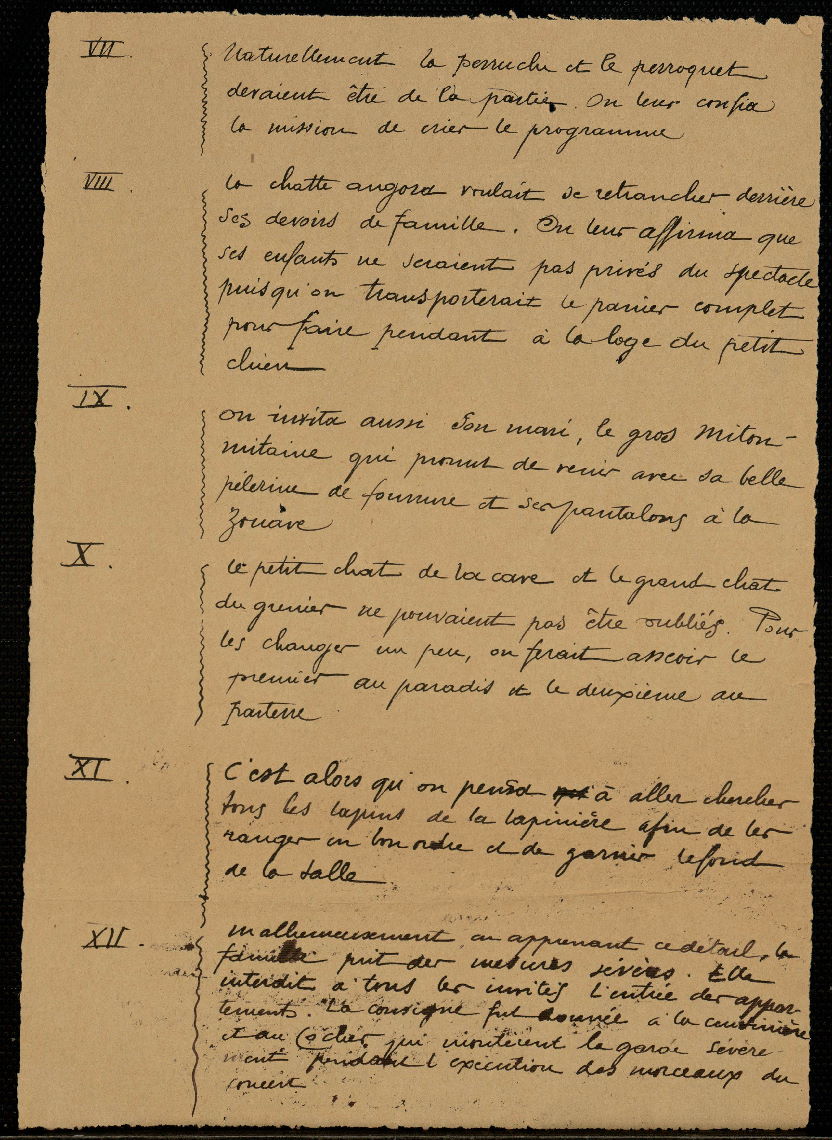 VII.
Naturellement la perruche et le perroquet
devaient être de la partie. On leur confia
la mission de crier le programme
VIII.
la chatte angora voulait se retrancher derrière
ses devoirs de famille. On leur affirma que
ses enfants ne seraient pas privés du spectacle
puisqu'on transporterait le panier complet
pour faire pendant à la loge du petit
chien
IX.
on invita aussi son mari, le gros Miton-
mitaine qui promit de venir avec sa belle
pélerine de fourrure et ses pantalons à la
Zouave
X.
le petit chat de la cave et le grand chat
du grenier ne pouvaient pas être oubliés. Pour
les changer un peu, on ferait asseoir le
premier au paradis et le deuxième au
parterre
XI.
C'est alors qu'on pensa à aller chercher
tous les lapins de la lapinière afin de les
ranger en bon ordre et de garnir le fond
de la salle
XII.
Malheureusement, en apprenant ce détail, la
famille prit des mesures sévères. Elle
interdit à tous les invités l'entrée des appar-
tements. La consigne fut donnée à la cuisinière
et au Cocher qui montèrent la garde sévère
ment pendant l'exécution des morceaux du
concert